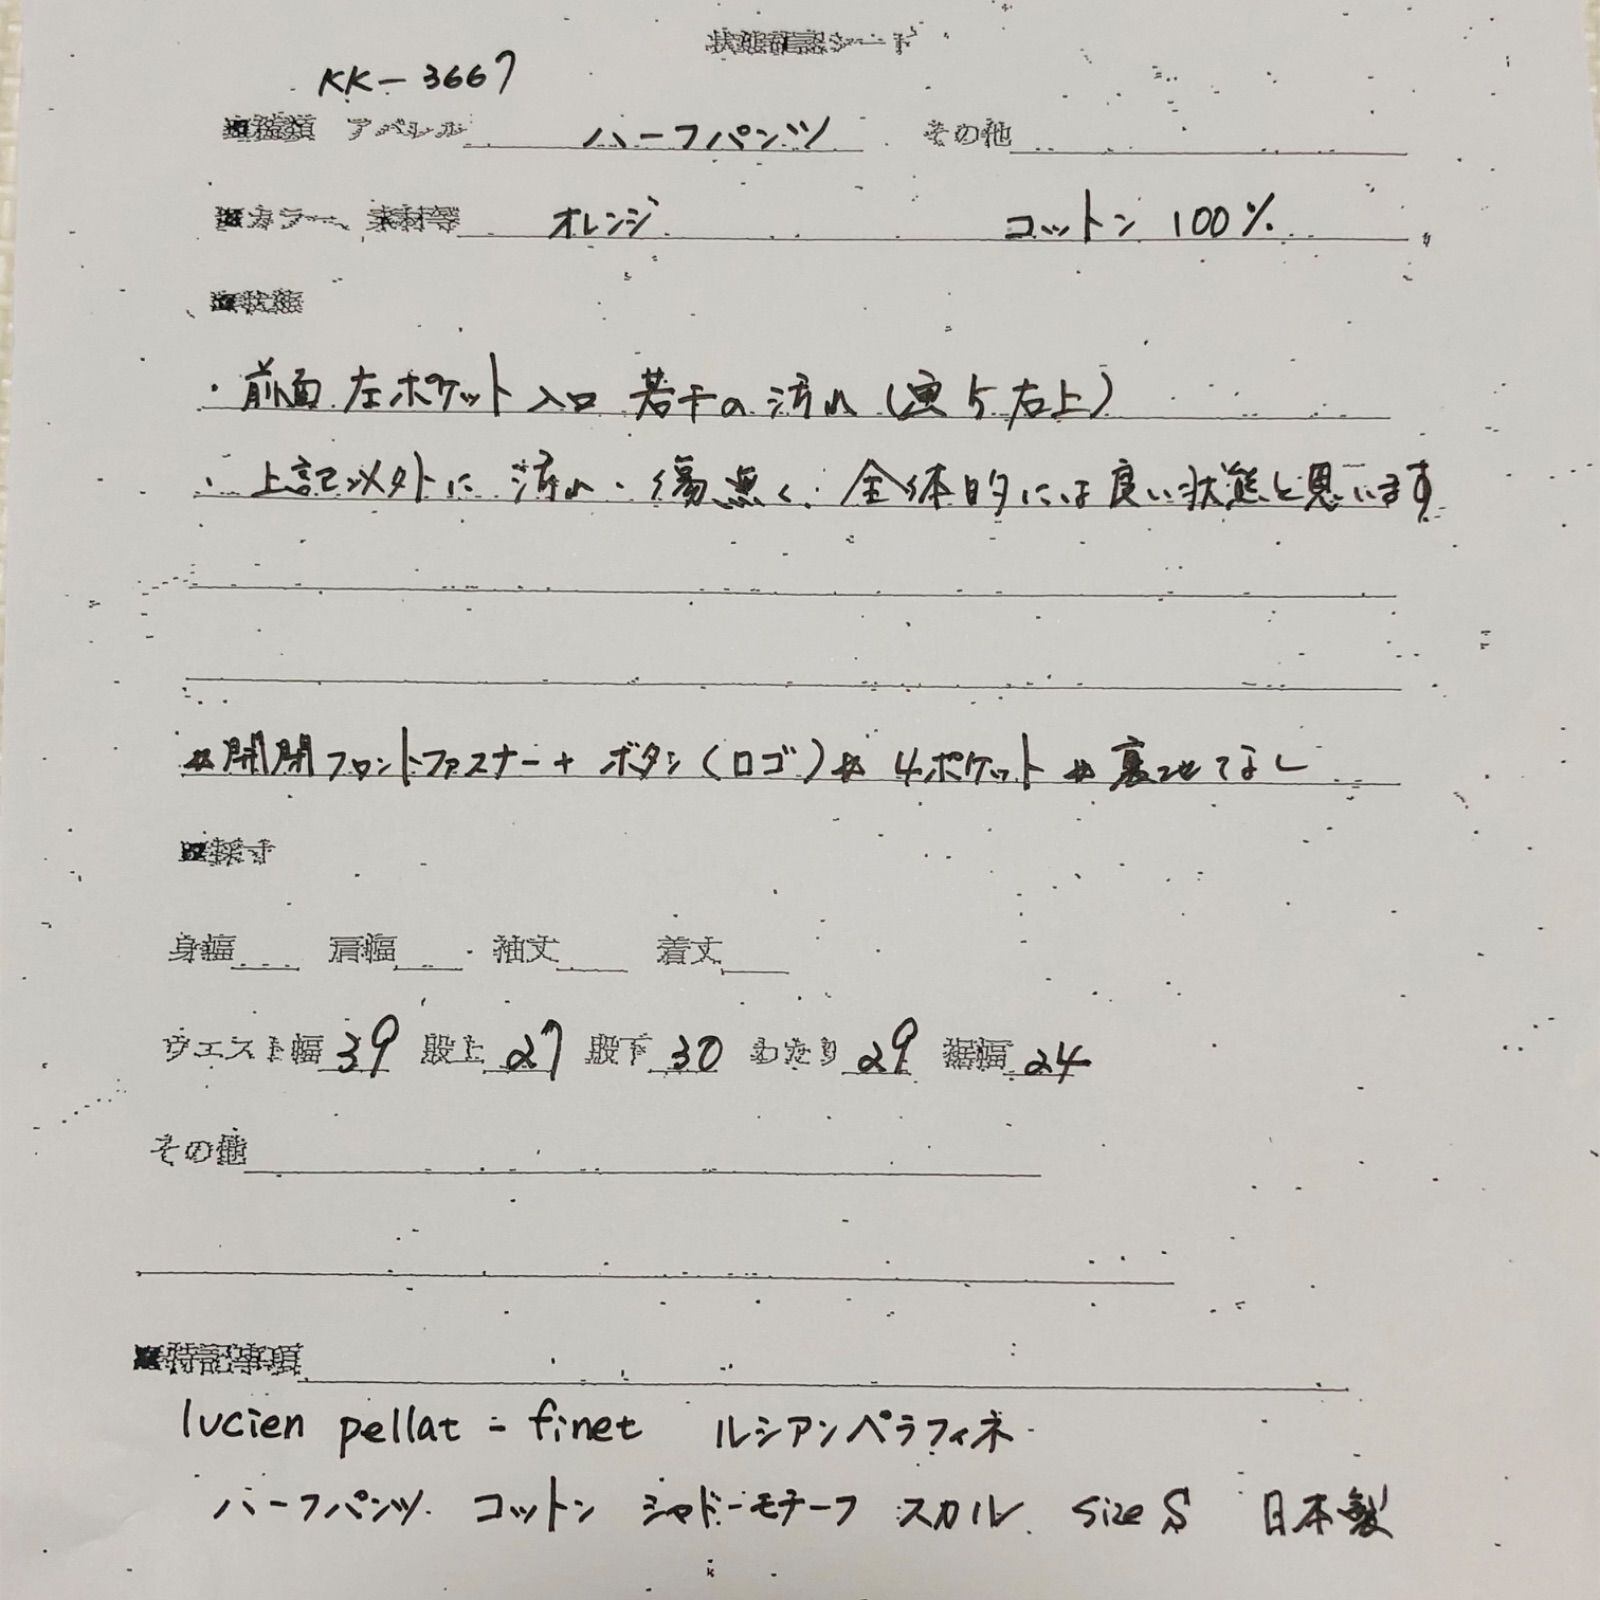 状態確認シート
KK-3667
■種類 アパレル ハーフパンツ その他
■カラー、素材等 オレンジ コットン 100%
■状態
・前面 左ポケット入口 若干の汚れ(画像右上)
・上記以外に 汚れ・傷無く、全体的には良い状態と思います
*開閉フロントファスナー+ボタン(ロゴ)* 4ポケット * 裏地なし
■採寸
身幅 肩幅 袖丈 着丈
ウエスト幅 39 股上 27 股下 30 わたり 29 裾幅 24
その他
■特記事項
lucien pellat-finet ルシアンペラフィネ
ハーフパンツ コットン シャドーモチーフ スカル size S 日本製